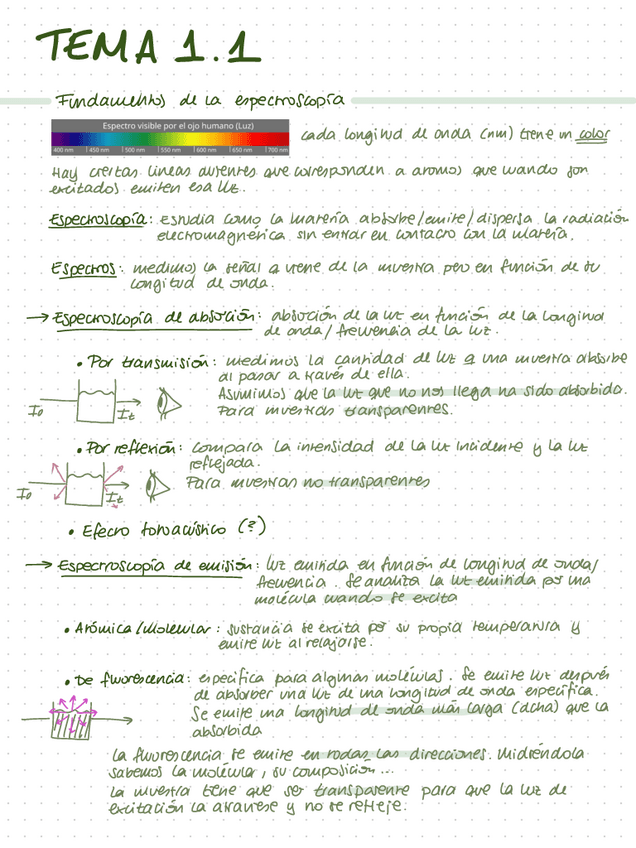 TEMA 1.1
Fundamentos de la espectroscopía
Espectro visible por el ojo humano (Luz)
400 nm 450 nm 500 nm 550 nm 600 nm 650 nm 700 nm
cada longitud de onda (nm) tiene un color
Hay ciertas lineas ausentes que corresponden a atomos que cuando son
excitados emiten esa luz.
Espectroscopía: estudia como la materia absorbe/emite/dispersa la radiación
electromagnética sin entrar en contacto con la materia.
Espectros: medimos la señal q viene de la muestra pero en función de su
longitud de onda.
→ Espectroscopía de absorción: absorción de la luz en función de la longitud
de onda/frecuencia de la luz.
• Por transmisión: medimos la cantidad de luz q una muestra absorbe
al pasar a través de ella.
Asumimos que la luz que no nos llega ha sido absorbida.
Para muestras transparentes.
I₀ It
• Por reflexión: compara la intensidad de la luz incidente y la luz
reflejada.
Para muestras no transparentes
I₀ It
• Efecto fotoacústico (?)
→ Espectroscopía de emisión: luz emitida en función de longitud de onda/
frecuencia. Se analiza la luz emitida por una
molécula cuando se excita
• Atómica/Molecular: sustancia se excita por su propia temperatura y
emite luz al relajarse.
• De fluorescencia: específica para algunas moléculas. Se emite luz después
de absorber una luz de una longitud de onda específica.
Se emite una longitud de onda más larga (dcha) que la
absorbida
La fluorescencia se emite en todas las direcciones. Midiéndola
sabemos la molécula, su composición...
La muestra tiene que ser transparente para que la luz de
excitación la atraviese y no se refleje.